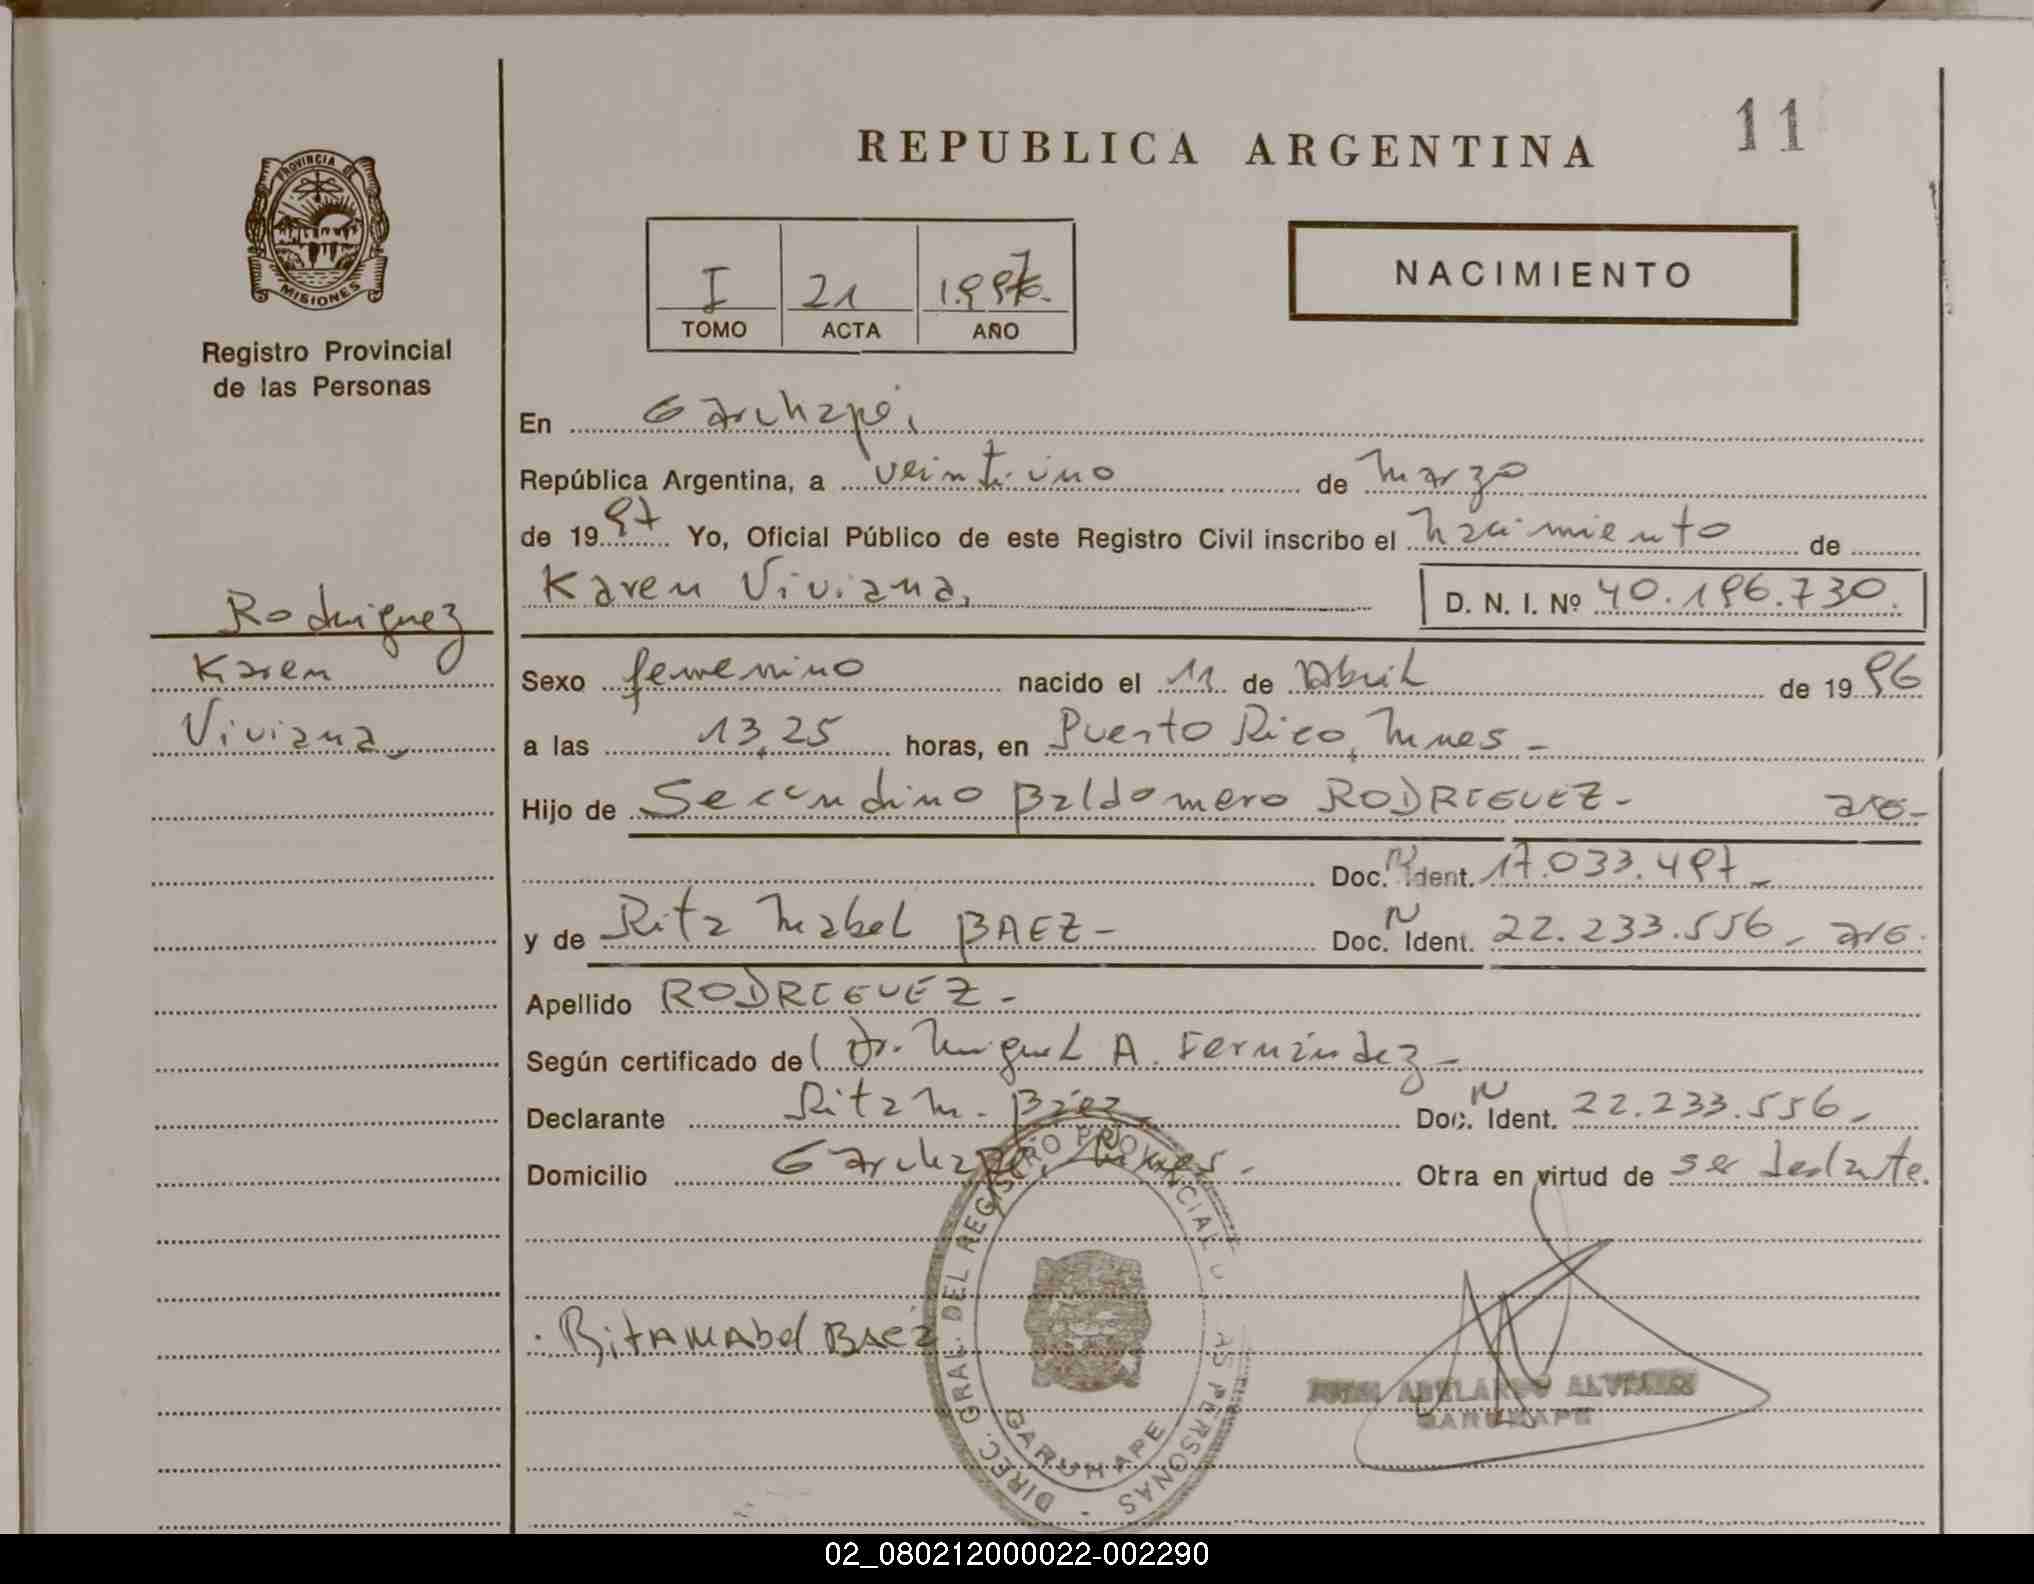 11
REPUBLICA ARGENTINA
PROVINCIA DE
MISIONES
Registro Provincial
de las Personas
I 21 1.997
TOMO ACTA AÑO
NACIMIENTO
En Garuhapé,
República Argentina, a veintiuno de Marzo
de 1997 Yo, Oficial Público de este Registro Civil inscribo el Nacimiento de
Karen Viviana, D. N. I. Nº 40.196.730.
Rodriguez
Karen
Viviana
Sexo femenino nacido el 11 de Abril de 1996
a las 13,25 horas, en Puerto Rico, Mnes -
Hijo de Secundino Baldomero RODRIGUEZ - arg -
Doc. N Ident. 17.033.497 -
y de Rita Mabel BAEZ - Doc. N Ident. 22.233.556 - arg.
Apellido RODRIGUEZ -
Según certificado del Dr. Miguel A. Fernández -
Declarante Rita M. Báez Doc. N Ident. 22.233.556 -
Domicilio Garuhapé, Mnes. - Obra en virtud de ser declante.
Rita Mabel BAEZ
DIREC. GRAL. DEL REGISTRO PROVINCIAL DE LAS PERSONAS -
GARUHAPE
ABELARDO
GARUHAPE
02_080212000022-002290